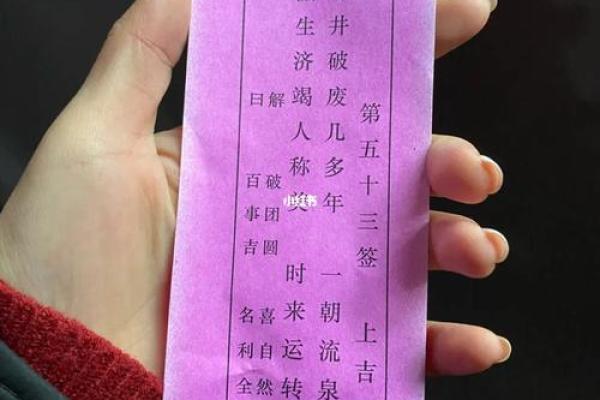 第五十三签 上吉
井破废几多年 一朝流泉
生济竭人称美 时来运转
解 破团圆 喜自然
曰 百事吉 名利全
小红书